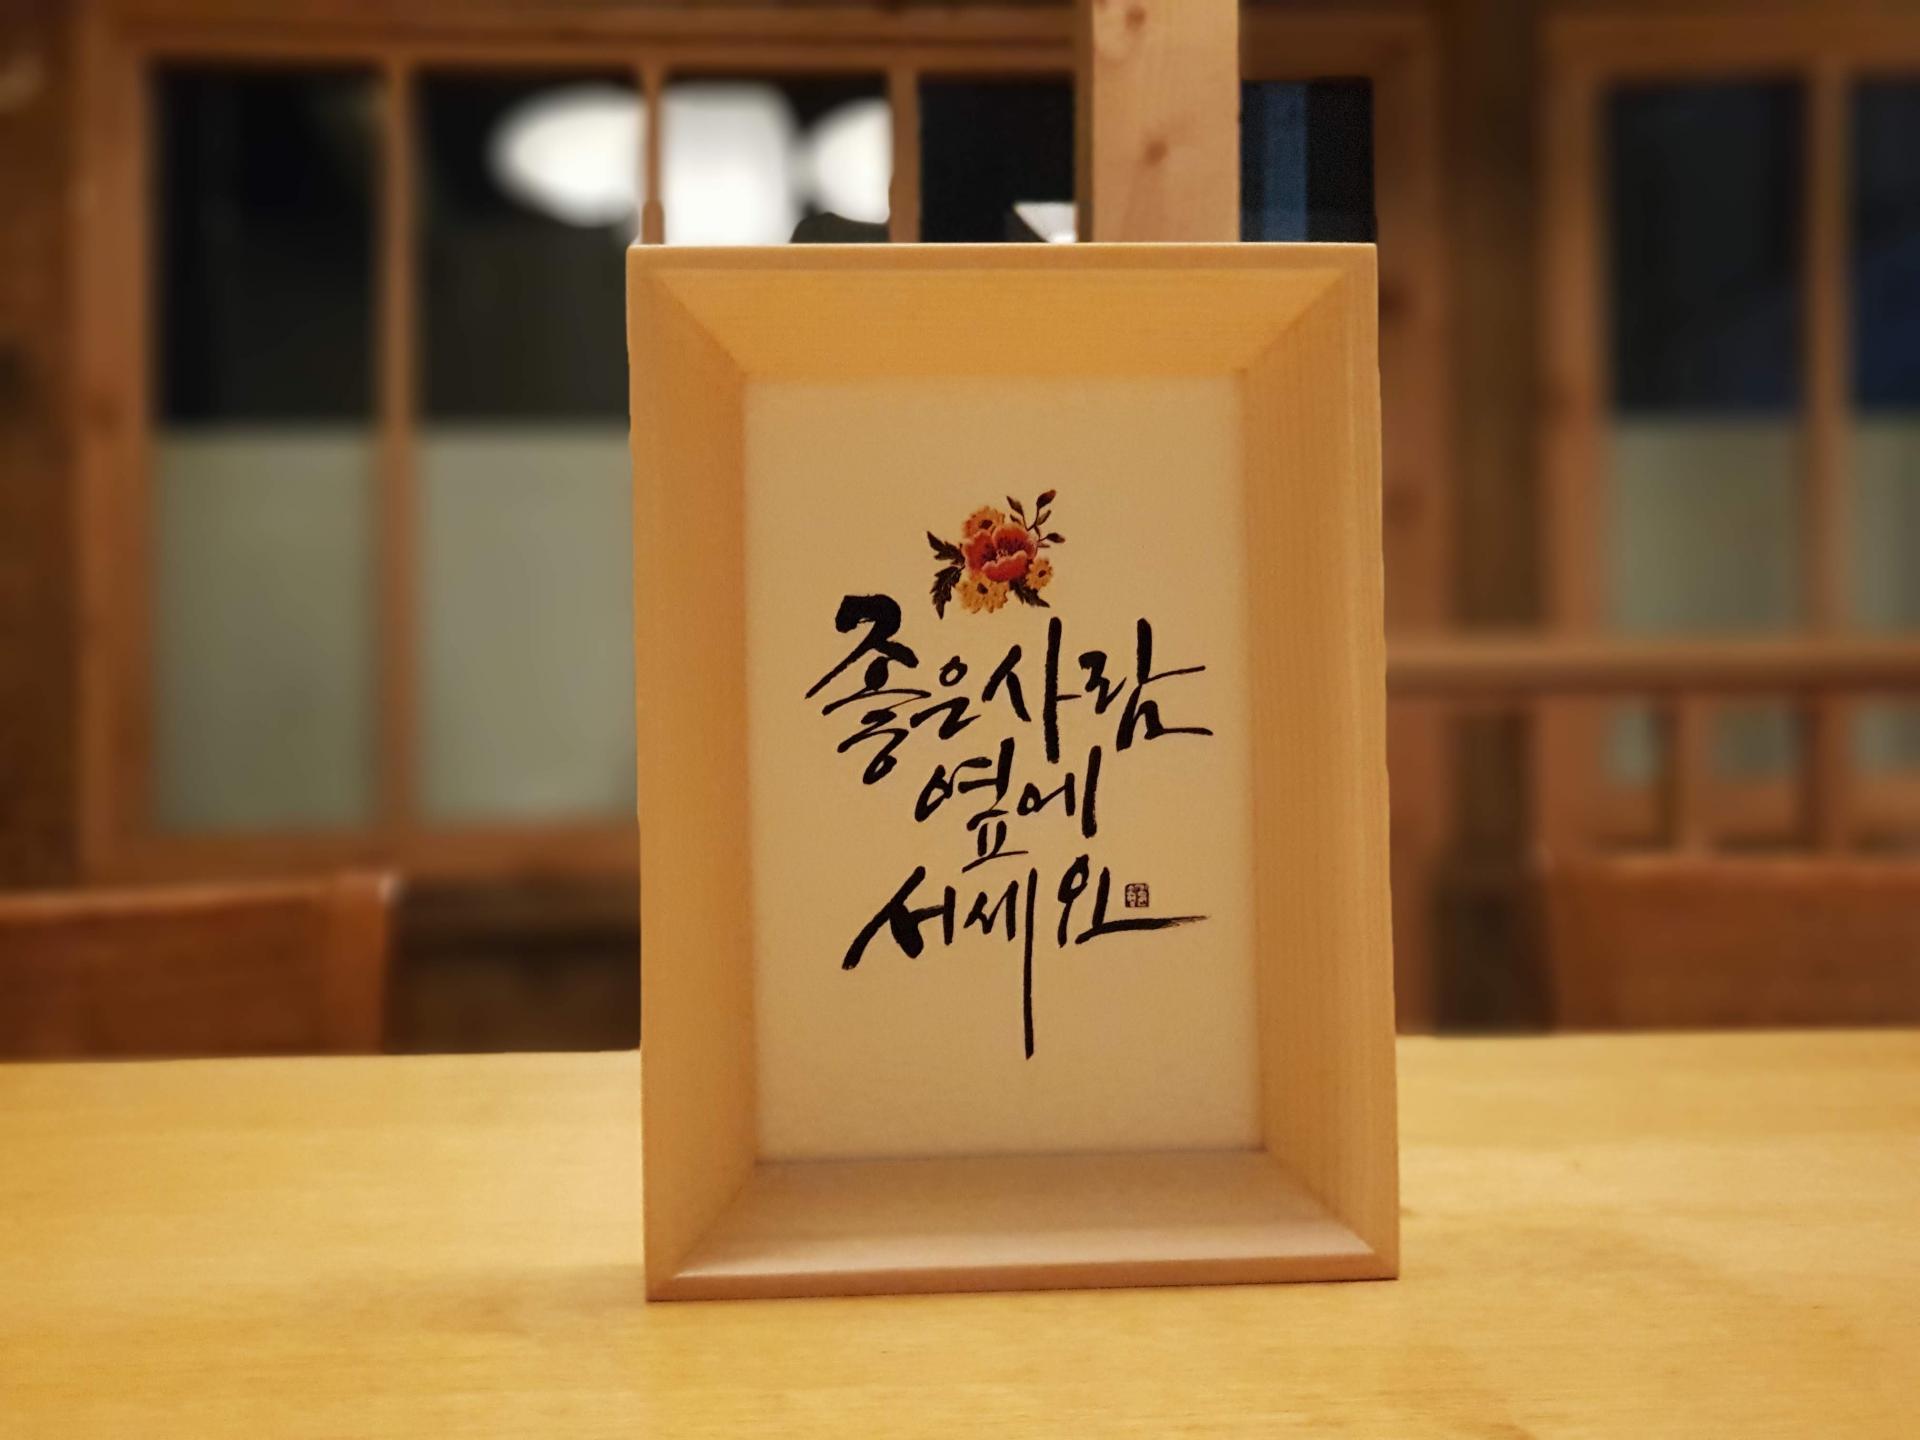 좋은사람
옆에
서세요